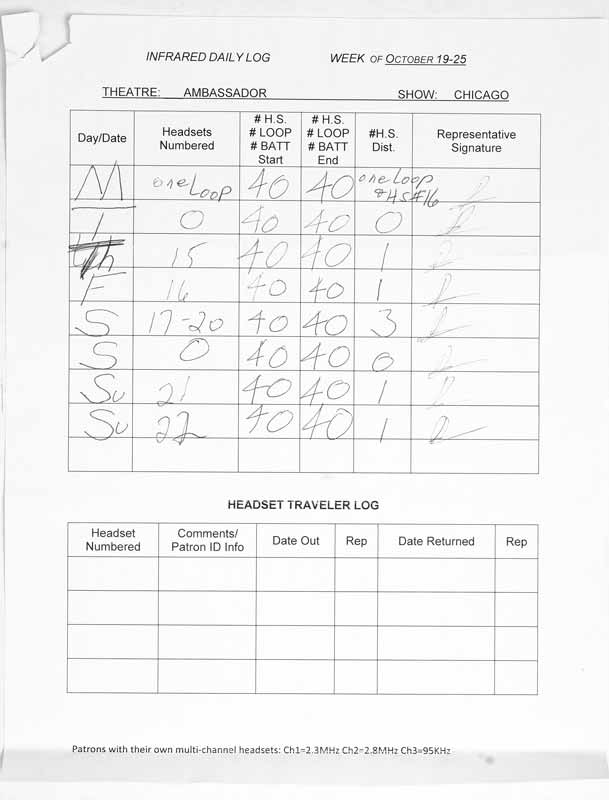 INFRARED DAILY LOG WEEK OF OCTOBER 19-25
THEATRE: AMBASSADOR SHOW: CHICAGO
Day/Date Headsets Numbered # H.S. # LOOP # BATT Start # H.S. # LOOP # BATT End #H.S. Dist. Representative Signature
M one Loop 40 40 one Loop & HS#16
T 0 40 40 0
Th 15 40 40 1
F 16 40 40 1
S 17-20 40 40 3
S 0 40 40 0
Su 21 40 40 1
Su 22 40 40 1
HEADSET TRAVELER LOG
Headset Numbered Comments/ Patron ID Info Date Out Rep Date Returned Rep
Patrons with their own multi-channel headsets: Ch1=2.3MHz Ch2=2.8MHz Ch3=95KHz